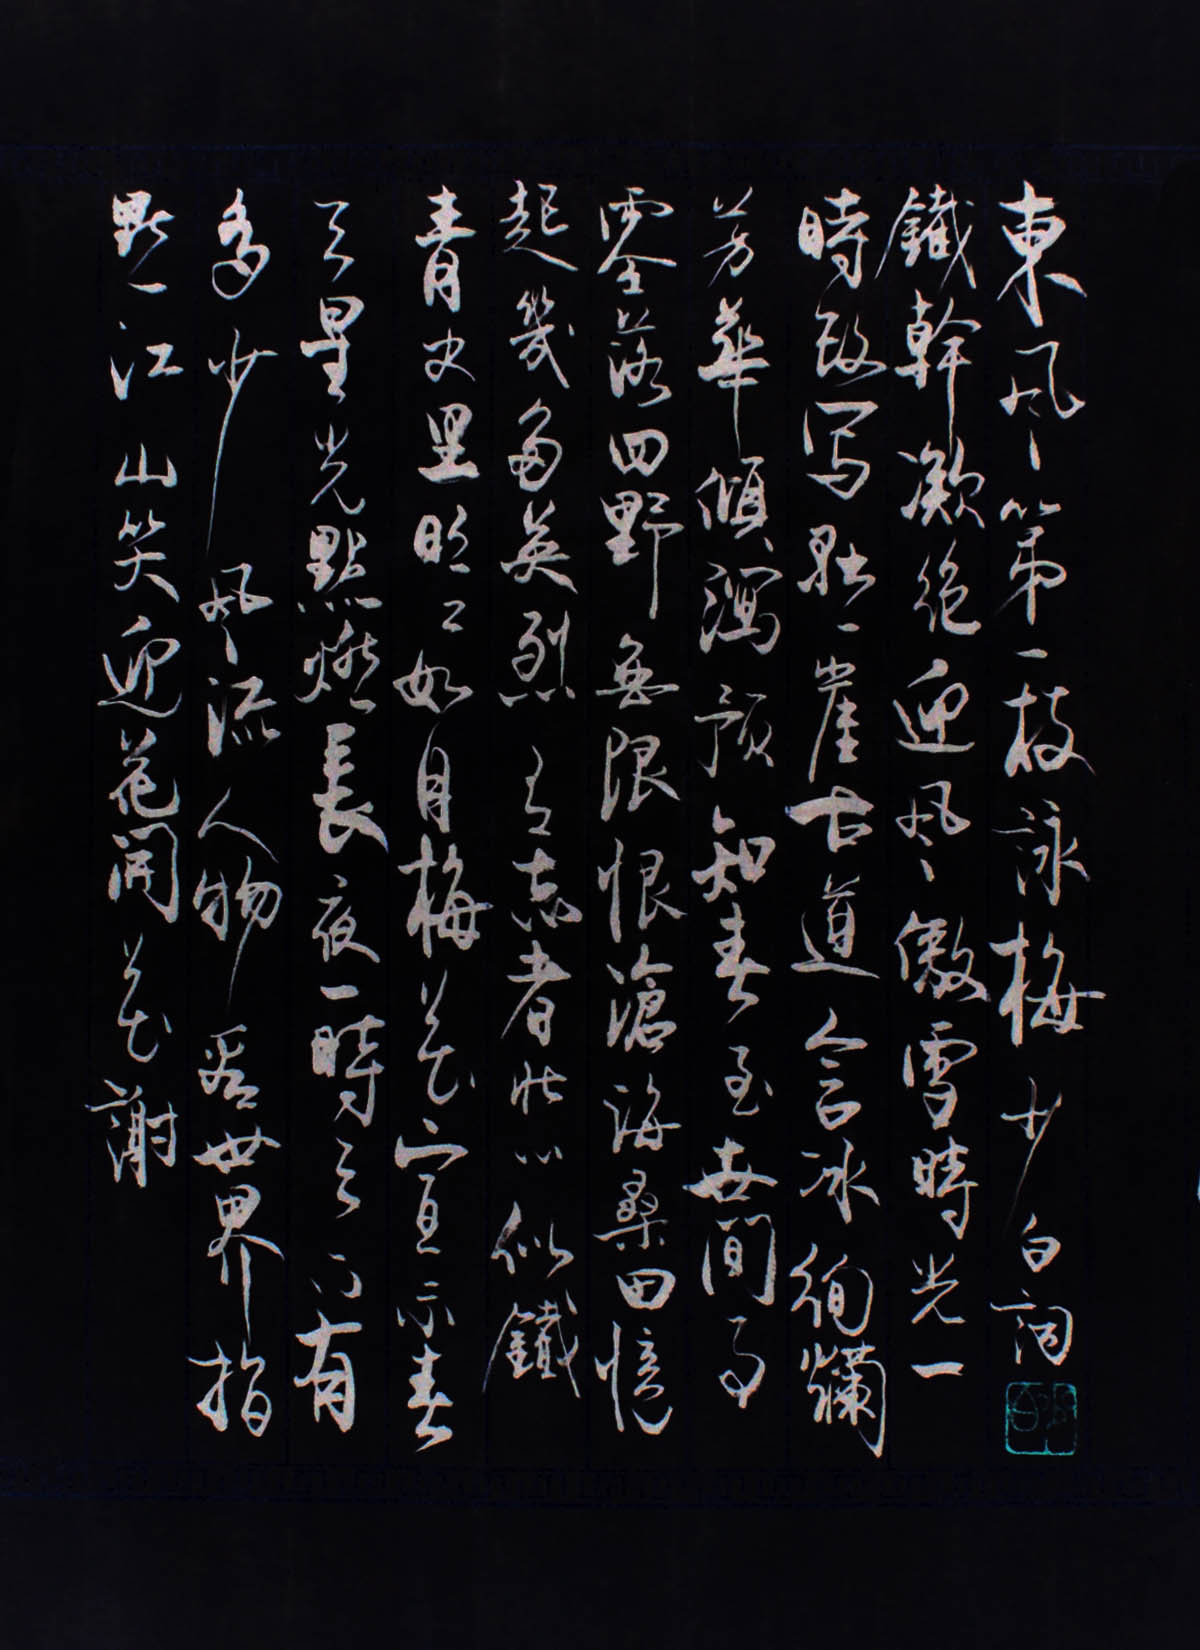 東風第一枝詠梅少白詞
鐵幹凝絕迎風傲雪時光一
時致写點崖古道含冰絢爛
芳華傾瀉預知春至世間事
零落四野無限恨滄海桑田憶
起幾多英烈有志者壯心似鐵
青史里昭昭如月梅花宣示春
之星光點燃長夜一時之、有
多少風流人物看世界指
點江山笑迎花開花謝